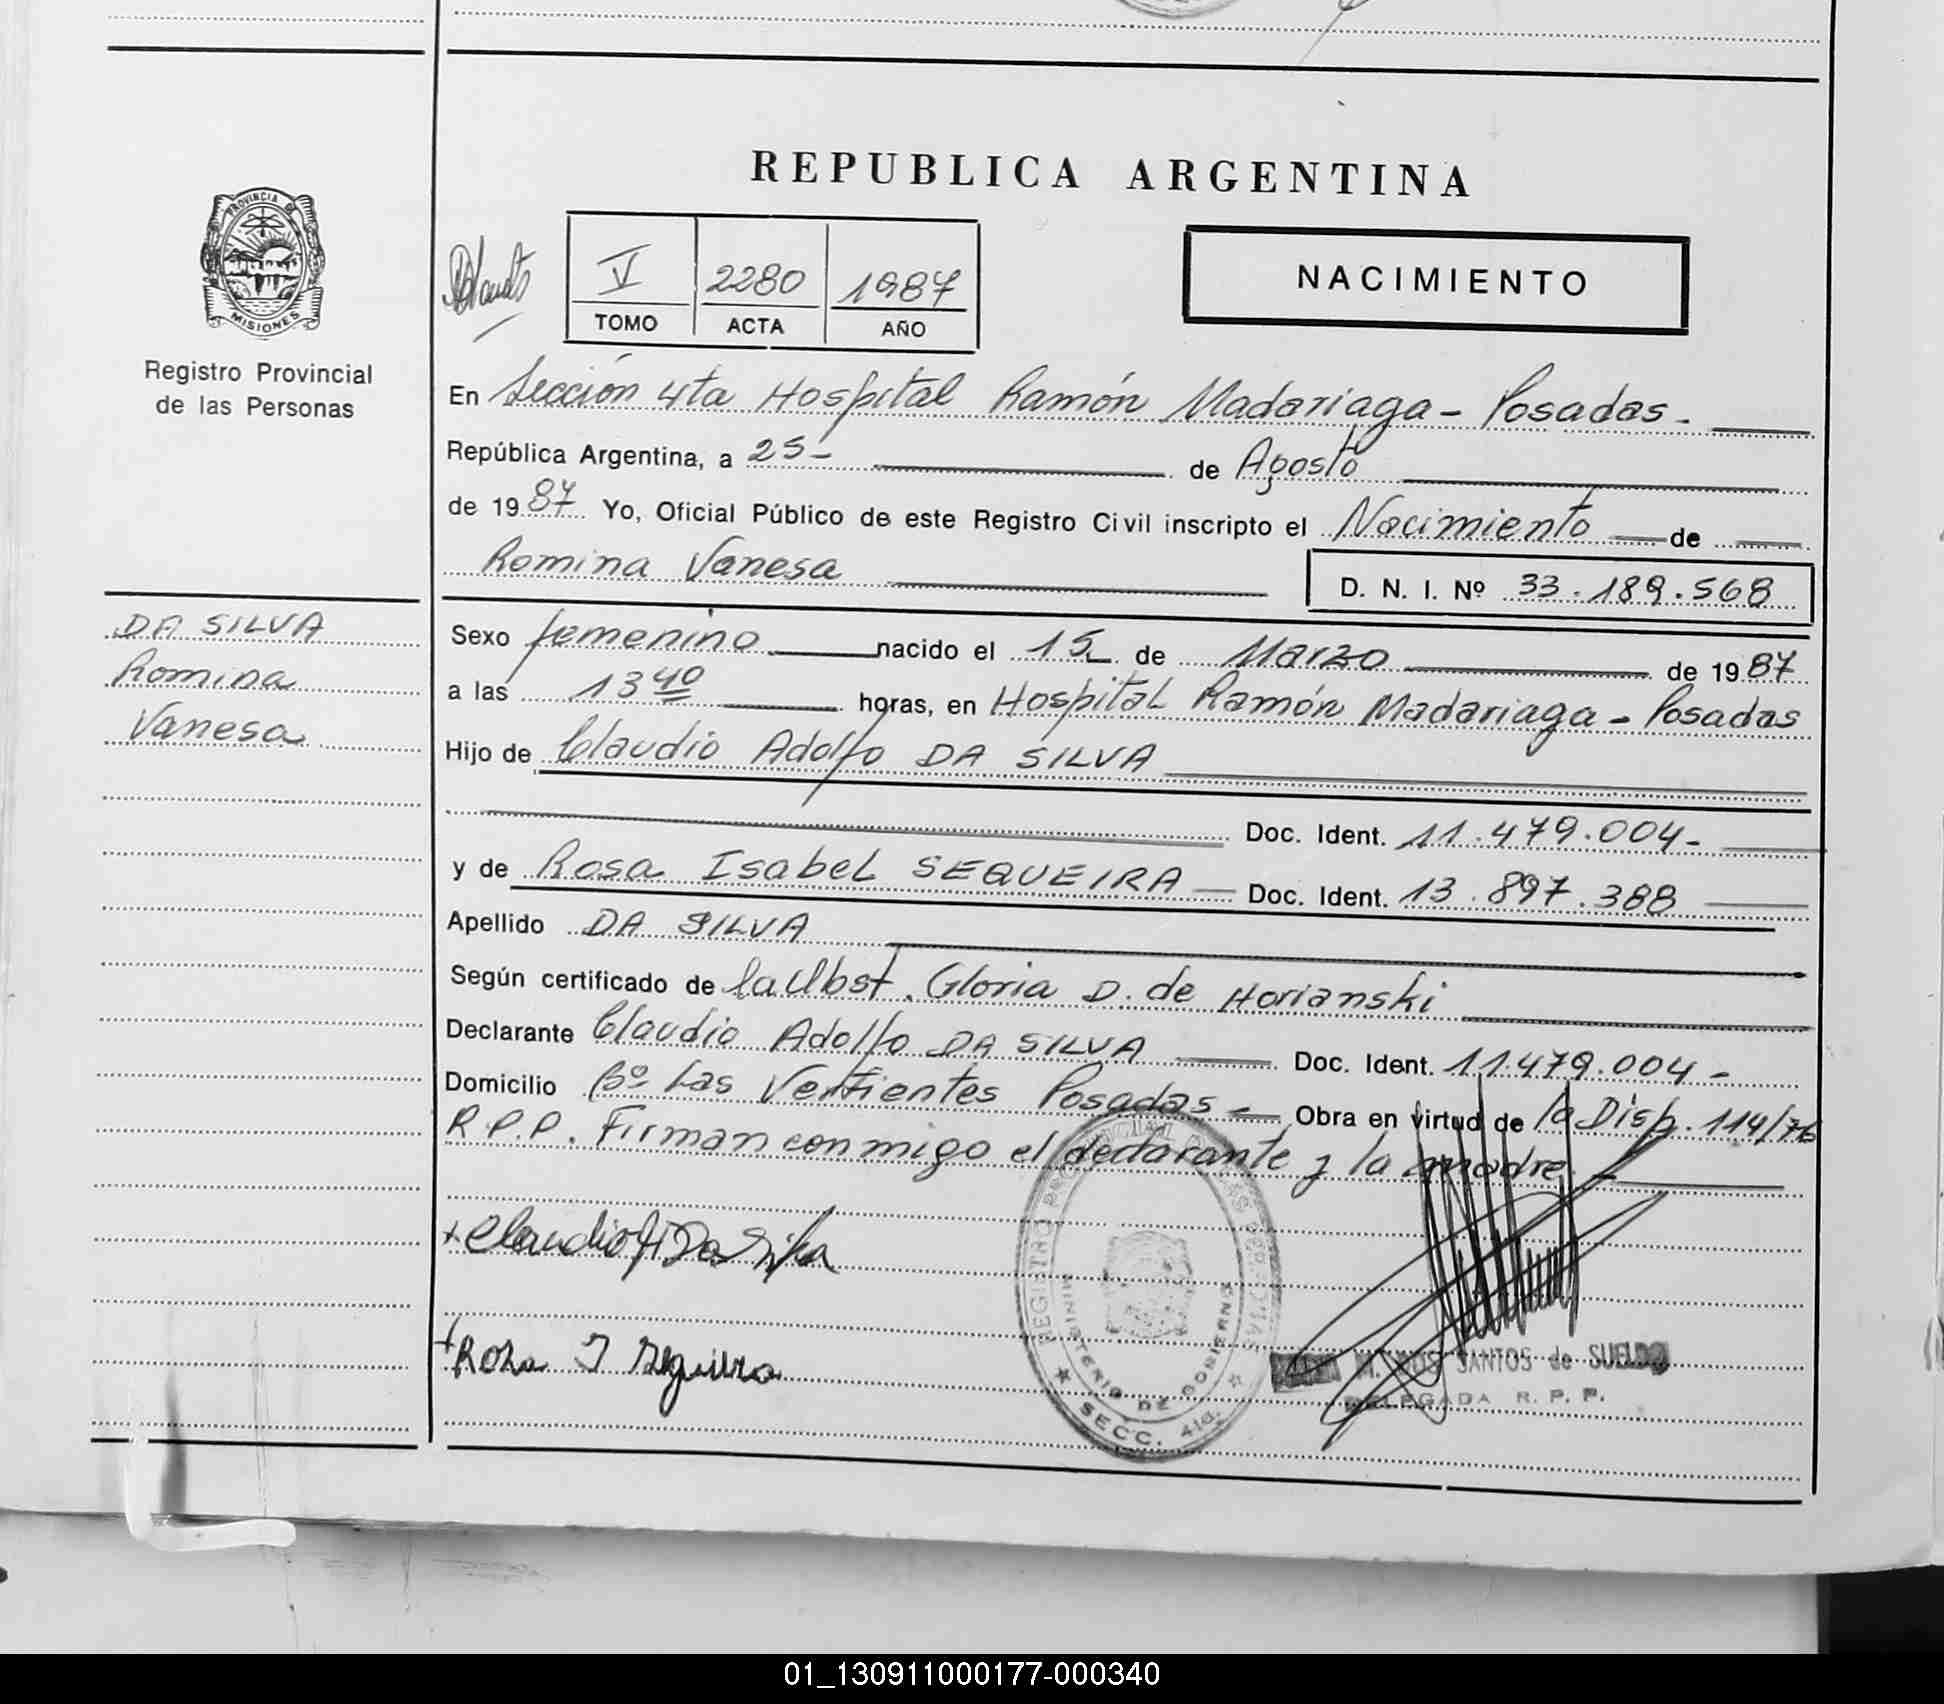 REPUBLICA ARGENTINA
PROVINCIA DE
MISIONES
Registro Provincial
de las Personas
V 2280 1987
TOMO ACTA AÑO
NACIMIENTO
En Sección 4ta Hospital Ramón Madariaga - Posadas -
República Argentina, a 25 - de Agosto
de 1987 Yo, Oficial Público de este Registro Civil inscripto el Nacimiento de
Romina Vanesa D. N. I. Nº 33.189.568
DA SILVA
Romina
Vanesa
Sexo femenino nacido el 15 de Marzo de 1987
a las 13 40 horas, en Hospital Ramón Madariaga - Posadas
Hijo de Claudio Adolfo DA SILVA
Doc. Ident. 11.479.004 -
y de Rosa Isabel SEQUEIRA Doc. Ident. 13.897.388
Apellido DA SILVA
Según certificado de la Obst. Gloria D. de Horianski
Declarante Claudio Adolfo DA SILVA Doc. Ident. 11.479.004 -
Domicilio Bº Las Vertientes Posadas - Obra en virtud de la Disp. 114/76
R.P.P. Firman conmigo el declarante y la madre
Claudio A Da Silva
Rosa I Sequeira
REGISTRO PROVINCIAL DE LAS PERSONAS
MINISTERIO DE GOBIERNO
SECC. 4ta.
M. DOS SANTOS de SUELDO
DELEGADA R. P. P.
01_130911000177-000340